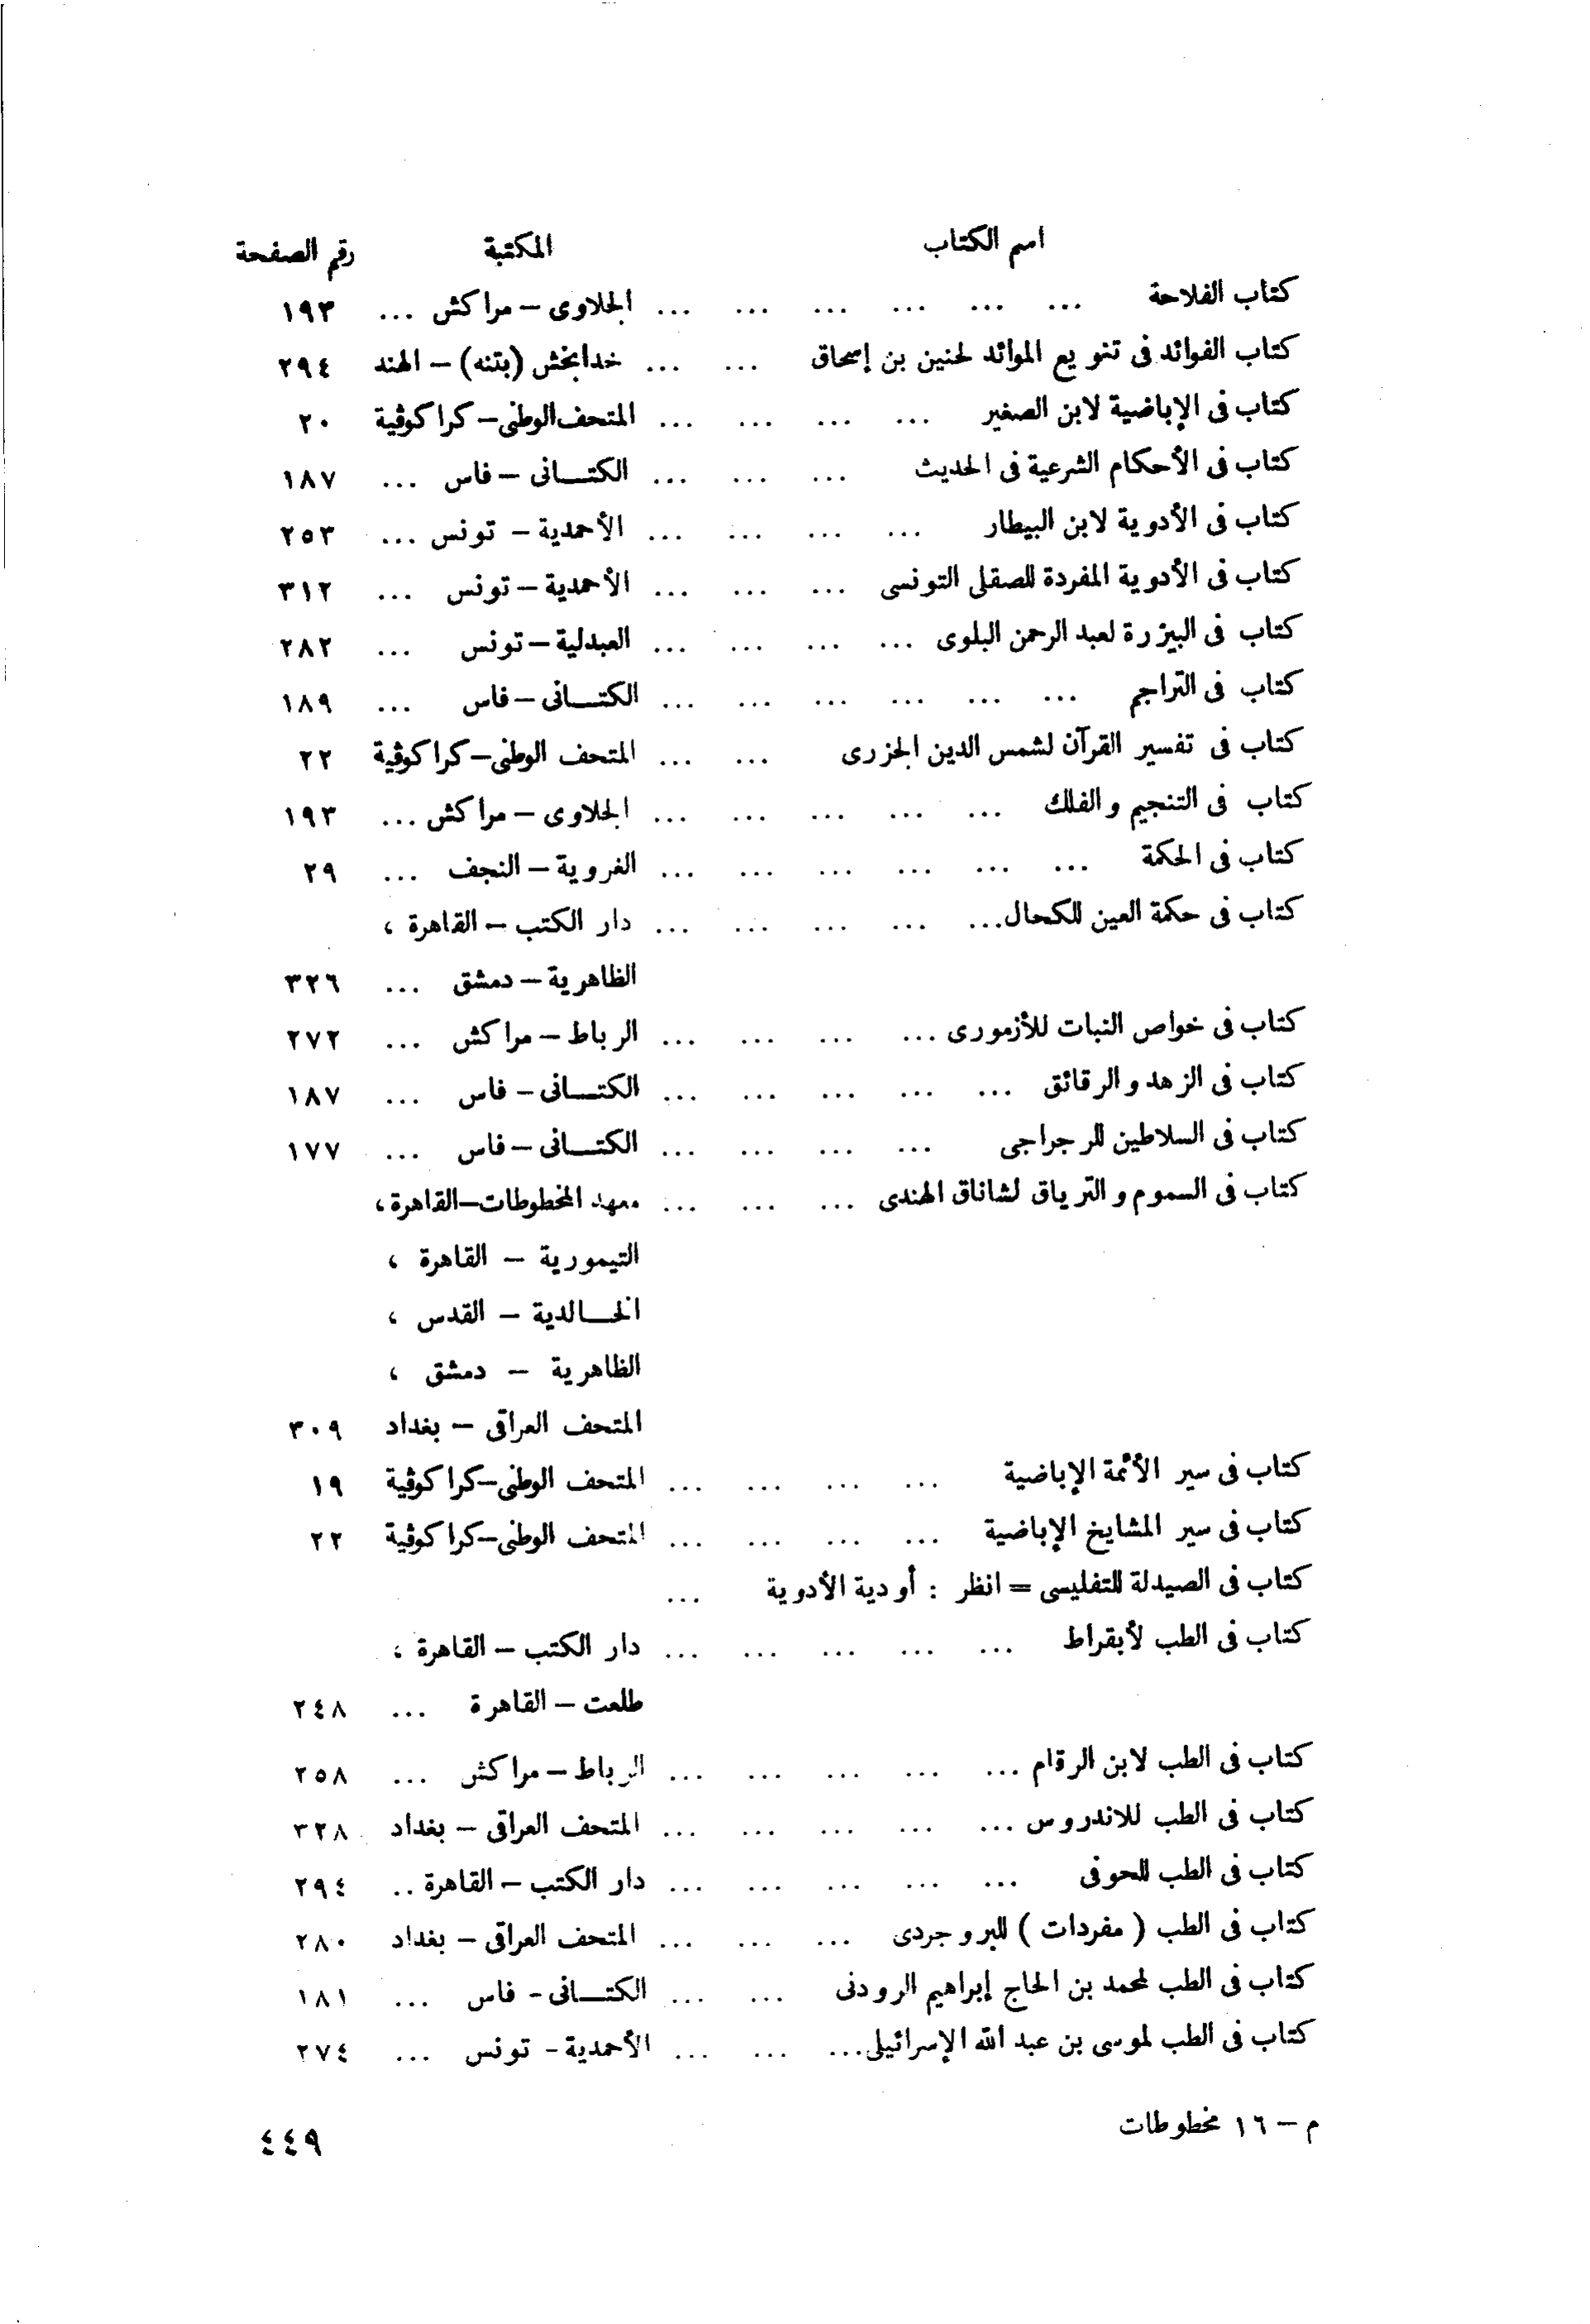 اسم الكتاب المكتبة رقم الصفحة
كتاب الفلاحة ... ... ... ... ... ... الجلاوى – مراكش ... ١٩٣
كتاب الفوائد فى تنويع الموائد لحنين بن إسحاق ... ... خدابخش (بتنه) – الهند ٢٩٤
كتاب فى الإباضية لابن الصغير ... ... ... ... المتحف الوطنى – كراكوڤية ٢٠
كتاب فى الأحكام الشرعية فى الحديث ... ... ... الكتانى – فاس ... ١٨٧
كتاب فى الأدوية لابن البيطار ... ... ... ... الأحمدية – تونس ... ٢٥٣
كتاب فى الأدوية المفردة للصقلى التونسى ... ... ... الأحمدية – تونس ... ٣١٢
كتاب فى البيزرة لعبد الرحمن البلوى ... ... ... ... العبدلية – تونس ... ٢٨٢
كتاب فى التراجم ... ... ... ... ... ... الكتانى – فاس ... ١٨٩
كتاب فى تفسير القرآن لشمس الدين الجزرى ... ... المتحف الوطنى – كراكوڤية ٢٢
كتاب فى التنجيم والفلك ... ... ... ... ... الجلاوى – مراكش ... ١٩٣
كتاب فى الحكمة ... ... ... ... ... ... الغروية – النجف ... ٢٩
كتاب فى حكمة العين للكحال ... ... ... ... ... دار الكتب – القاهرة ،
الظاهرية – دمشق ... ٣٢٦
كتاب فى خواص النبات للأزمورى ... ... ... ... الرباط – مراكش ... ٢٧٢
كتاب فى الزهد والرقائق ... ... ... ... ... الكتانى – فاس ... ١٨٧
كتاب فى السلاطين للرجراجى ... ... ... ... الكتانى – فاس ... ١٧٧
كتاب فى السموم والترياق لشاناق الهندى ... ... ... معهد المخطوطات – القاهرة ،
التيمورية – القاهرة ،
الخالدية – القدس ،
الظاهرية – دمشق ،
المتحف العراقى – بغداد ٣٠٩
كتاب فى سير الأئمة الإباضية ... ... ... ... المتحف الوطنى – كراكوڤية ١٩
كتاب فى سير المشايخ الإباضية ... ... ... ... المتحف الوطنى – كراكوڤية ٢٢
كتاب فى الصيدلة للتفليسى = انظر : أودية الأدوية ...
كتاب فى الطب لأبقراط ... ... ... ... ... دار الكتب – القاهرة ،
طلعت – القاهرة ... ٢٤٨
كتاب فى الطب لابن الرقام ... ... ... ... ... الرباط – مراكش ... ٢٥٨
كتاب فى الطب للاندروس ... ... ... ... ... المتحف العراقى – بغداد ٣٢٨
كتاب فى الطب للحوفى ... ... ... ... ... دار الكتب – القاهرة .. ٢٩٤
كتاب فى الطب ( مفردات ) للبروجردى ... ... ... المتحف العراقى – بغداد ٢٨٠
كتاب فى الطب لمحمد بن الحاج إبراهيم الرودنى ... ... الكتانى – فاس ... ١٨١
كتاب فى الطب لموسى بن عبد الله الإسرائيلى ... ... ... الأحمدية – تونس ... ٢٧٤
م – ١٦ مخطوطات
٤٤٩